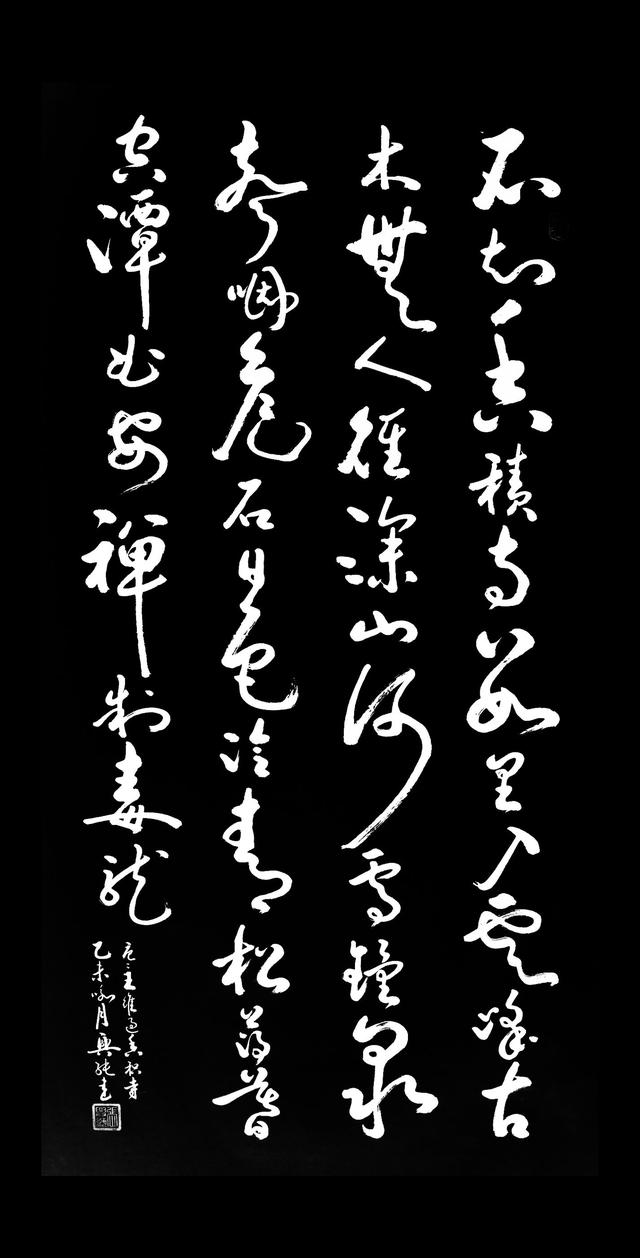 不知香積寺數里入雲峰古
木無人徑深山何處鐘泉
聲咽危石日色冷青松薄暮
空潭曲安禪制毒龍
王維過香積寺
乙未月興書